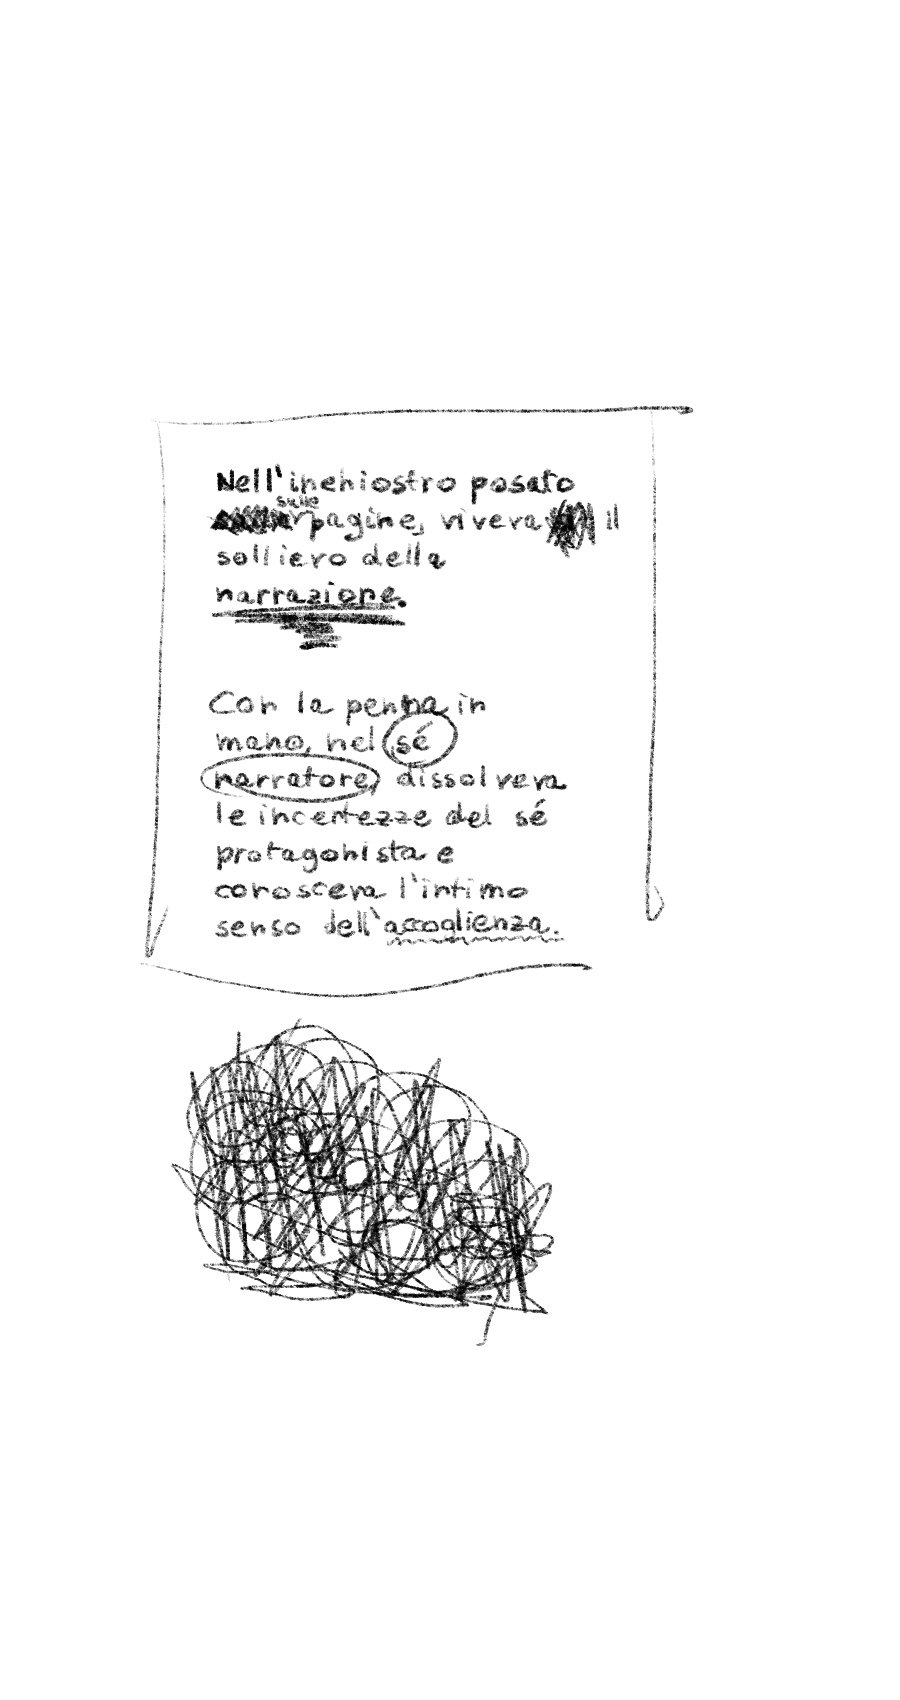 Nell'inchiostro posato
sulle pagine, viveva il
sollievo della
narrazione.
Con la penna in
mano, nel sé
narratore, dissolveva
le incertezze del sé
protagonista e
conosceva l'intimo
senso dell'accoglienza.